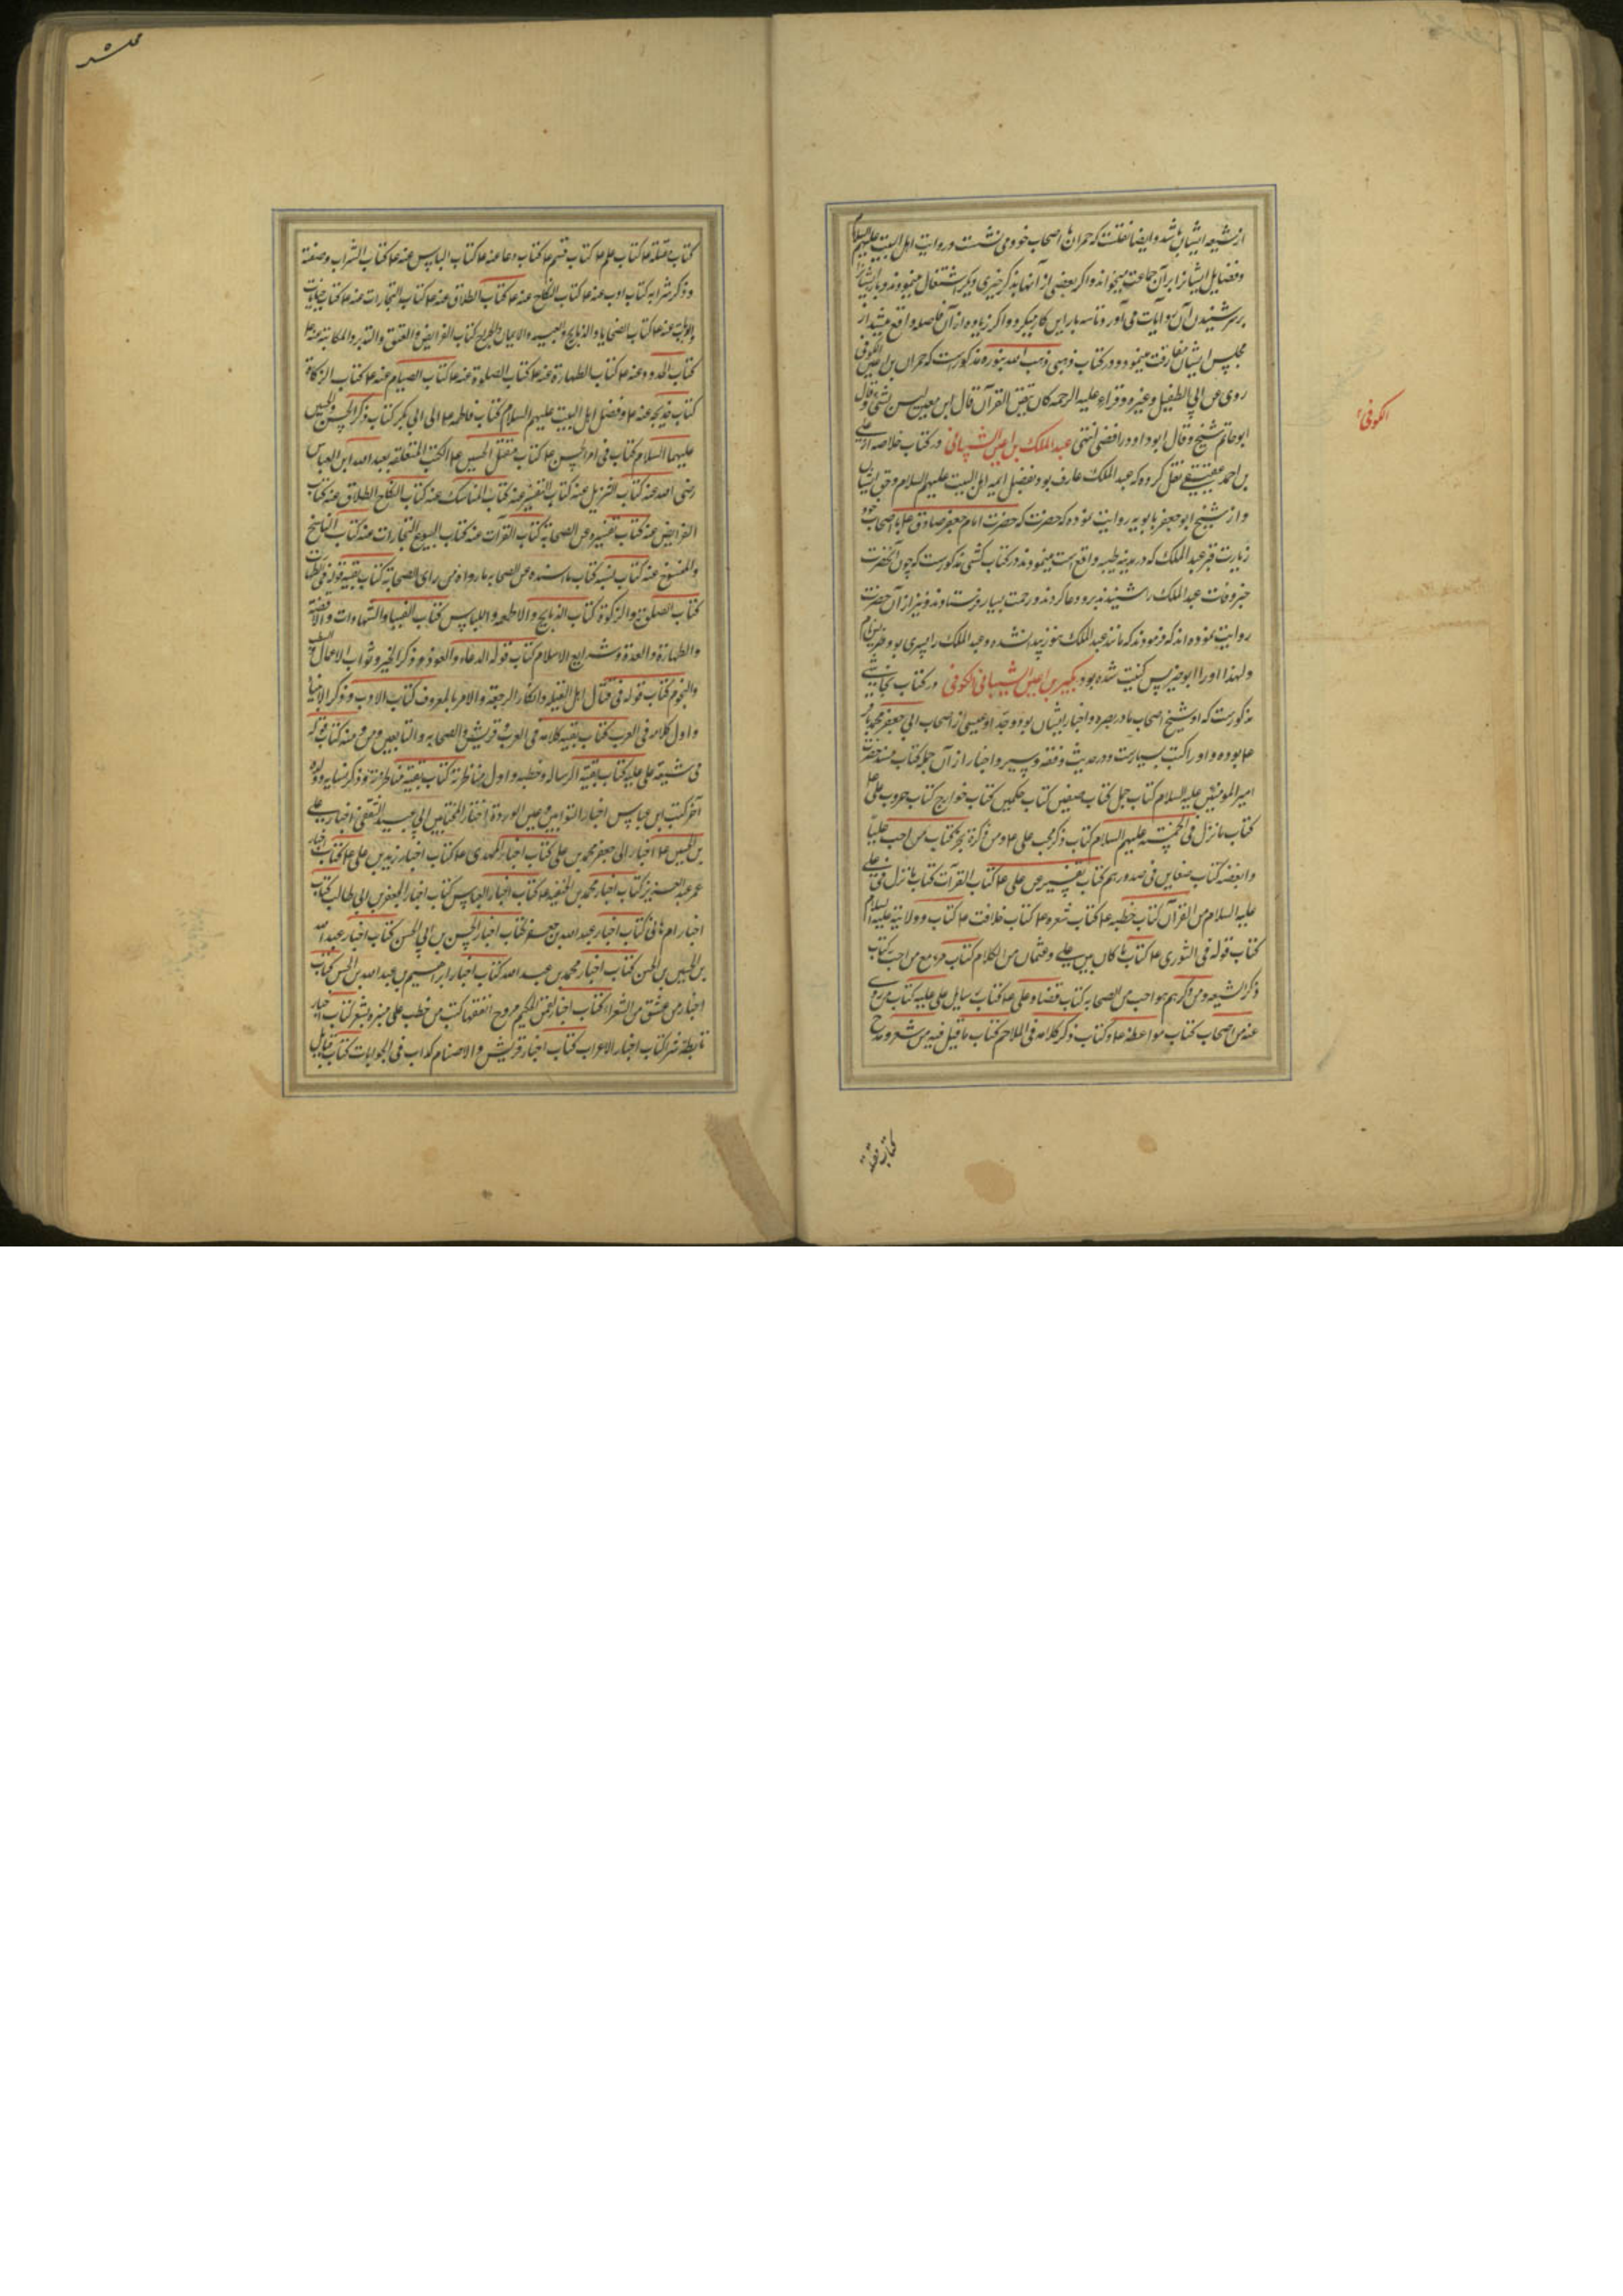 از شیعه ایشان باشد و ایضا نقلست که حمران با اصحاب خود می نشست و روایت اهل البیت علیهم السلام
و فضایل ایشانرا بر آن جماعت میخواند و اگر بعضی از آنها بذکر خبری دیگر اشتغال مینمودند باز ایشانرا
بر سر شنیدن آن روایات می آورد و تا سه بار این کار میکرد و اگر زیاده از آن فاصله واقع میشد از
مجلس ایشان مفارقت مینمود و در کتاب ذهبی ذهب الله بنوره مذکورست که حمران بن اعین الکوفی
روی عن ابی الطفیل و غیره و قراء علیه الرحمه کان یتقن القرآن قال ابن معین لیس بشئ و قال
ابو حاتم شیخ و قال ابو داود رافضی انتهی عبد الملک بن اعین الشیبانی در کتاب خلاصه از علی
بن احمد عقیقی نقل کرده که عبد الملک عارف بود بفضل ایمه اهل البیت علیهم السلام و حق ایشان
و از شیخ ابو جعفر بابویه روایت نموده که حضرت که حضرت امام جعفر صادق ع با اصحاب خود
زیارت قبر عبد الملک که در مدینه طیبه واقع است مینمودند در کتاب کشی مذکورست که چون آنحضرت
خبر وفات عبد الملک را شنیدند برو دعا کردند و رحمت بسیار فرستادند و نیز از آن حضرت
روایت نموده اند که فرمودند که مانند عبد الملک هنوز پیدا نشده و عبد الملک را پسری بود ضریس نام
و لهذا او را ابو ضریس کنیت شده بود بکیر بن اعین الشیبانی الکوفی در کتاب نجاشی
مذکورست که او شیخ اصحاب ما در بصره و اخبار ایشان بود و جدّ او عیسی از اصحاب ابی جعفر محمد باقر
ع بوده و او را کتب بسیارست در حدیث و فقه و سیر و اخبار از آن جمله کتاب مسند حضرت
امیر المومنین علیه السلام کتاب جمل کتاب صفین کتاب حکمین کتاب خوارج کتاب حروب علی ع
کتاب ما نزل فی الخمسه علیهم السلام کتاب ذکر محب علی ع و من ذکره بخیر کتاب من احب علیا
و ابغضه کتاب ضغاین فی صدورهم کتاب تفسیر عن علی ع کتاب القرآت کتاب ما نزل فی علی
علیه السلام من القرآن کتاب خطبه ع کتاب شعره ع کتاب خلافت ع کتاب و ولایته علیه السلام
کتاب قوله فی الشوری ع کتاب ما کان بین علی و عثمان من الکلام کتاب مع من احب کتاب
ذکر الشیعه و من ذکرهم هو احب من الصحابه کتاب قضاء علی ع کتاب رسایل علی علیه کتاب من روی
عنه من اصحاب کتاب مواعظه ع کتاب ذکر کلامه فی الملاحم کتاب ما قیل فیه من شعر و مدح
الکوفی
کتاب مقتله
کتاب مقتله ع کتاب علم ع کتاب قسم ع کتاب دعا عنه ع کتاب اللباس عنه ع کتاب الشراب و صفته
و ذکر شرابه کتاب ادب عنه ع کتاب النکاح عنه ع کتاب الطلاق عنه ع کتاب التجارات عنه ع کتاب جنایات
والدیات عنه ع کتاب الضحایا والذبایح والصید والایمان والخراج کتاب الفرایض والعتق والتدبیر والمکاتبه عنه ع
کتاب الحدود عنه ع کتاب الطهارة عنه ع کتاب الصلوة عنه ع کتاب الصیام عنه ع کتاب الزکاة
کتاب خدیجه عنه ع و فضل اهل البیت علیهم السلام کتاب فاطمه ع الی ابی بکر کتاب ذکر الحسن والحسین
علیهما السلام کتاب فی امر الحسن ع کتاب مقتل الحسین ع الکتب المتعلقه بعبد الله ابن العباس
رضی الله عنه کتاب التنزیل عنه کتاب التفسیر عنه کتاب المناسک عنه کتاب النکاح الطلاق عنه کتاب
الفرایض عنه کتاب تفسیره عن الصحابة کتاب القرآت عنه کتاب البیوع التجارات عنه کتاب الناسخ
والمنسوخ عنه کتاب نسبه کتاب ما اسنده عن الصحابه ما رواه من رأی الصحابة کتاب بقیه قوله فی الطهارة
کتاب الصلوة والزکوة کتاب الذبایح والاطعمه واللباس کتاب الفتیا والشهادات والاقضیه
والطهارة والعدة و شرایع الاسلام کتاب قوله الدعاء والعوذ و ذکر الخیر و ثواب الاعمال
والنجوم کتاب قوله فی قتال اهل القبله و انکار الرجعة والامر بالمعروف کتاب الادب و ذکر الانبیا
و اول کلامه فی العرب کتاب بقیه کلامه فی العرب و قریش والصحابه والتابعین و من ذمه کتاب قوله
فی شیعة علی علیه کتاب بقیه الرساله و خطبه و اول مناظرته کتاب بقیة مناظرته و ذکر نسایه و ولده
آخر کتب ابن عباس اخبار التوابین و عین الوردة اخبار المختار بن ابی عبید الثقفی اخبار علی
بن الحسین ع اخبار ابی جعفر محمد بن علی کتاب اخبار المهدی ع کتاب اخبار زید بن علی ع کتاب اخبار
عمر عبد العزیز کتاب اخبار محمد بن الحنفیه ع کتاب اخبار العباس کتاب اخبار الجعفر بن ابی طالب کتاب
اخبار ام هانی کتاب اخبار عبد الله بن جعفر کتاب اخبار الحسن بن ابی الحسن کتاب اخبار عبد الله
بن الحسین بن الحسن کتاب اخبار محمد بن عبد الله کتاب اخبار ابراهیم بن عبد الله بن الحسن کتاب
اخبار من عشق من الشعراء کتاب اخبار لقمن الحکیم کتب من خطب علی منبر بشعر کتاب اخبار
تابط شرا کتاب اخبار الاعراب کتاب اخبار قریش والاصنام کتاب فی الجوابات کتاب قبایل